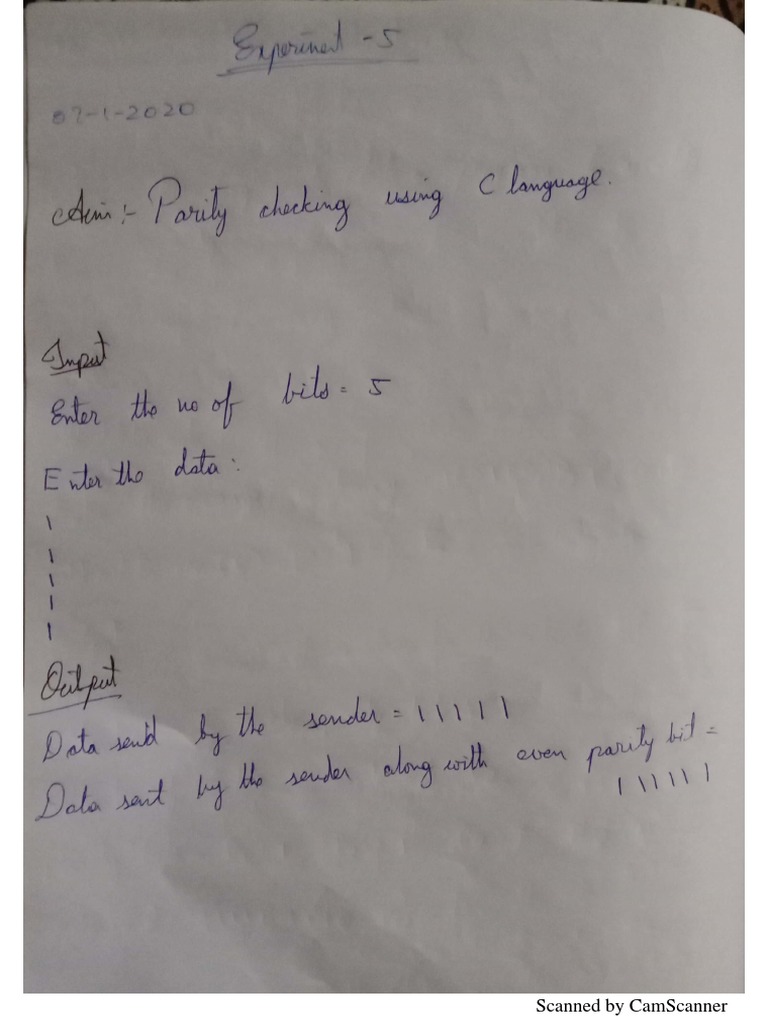 Experiment - 5
07-1-2020
Aim :- Parity checking using C language.
Input
Enter the no of bits = 5
Enter the data :
1
1
1
1
1
Output
Data send by the sender = 11111
Data sent by the sender along with even parity bit =
111111
Scanned by CamScanner